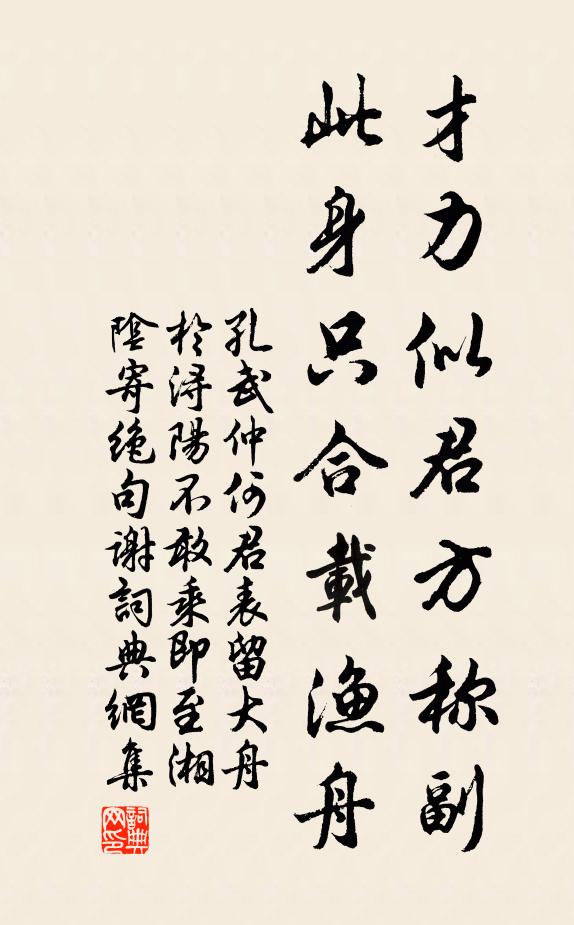 才力似君方称副
此身只合載漁舟
孔武仲何君表留大舟
於浔陽不敢乘即至湘
陰寄絶句谢詞典網集
詞典网印